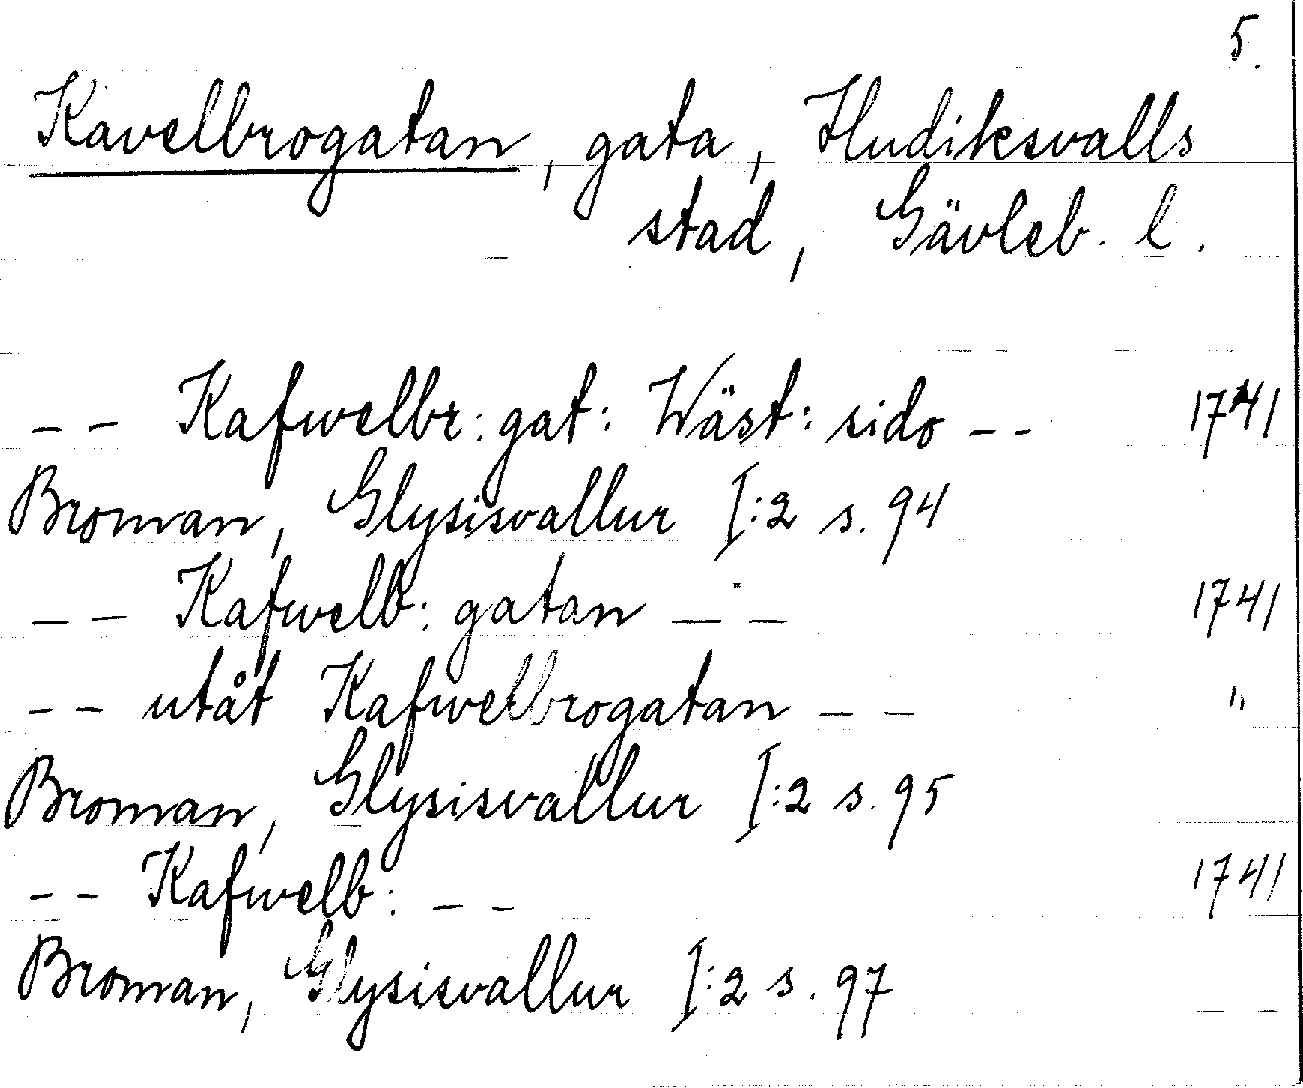 5.
Kavelbrogatan, gata, Hudiksvalls
stad, Gävleb. l.
-- Kafwelbr: gat: Wäst: sido -- 1741
Broman, Glysisvallur I:2 s. 94
-- Kafwelb: gatan -- 1741
-- utåt Kafwelbrogatan -- "
Broman, Glysisvallur I:2 s. 95
-- Kafwelb: -- 1741
Broman, Glysisvallur I:2 s. 97